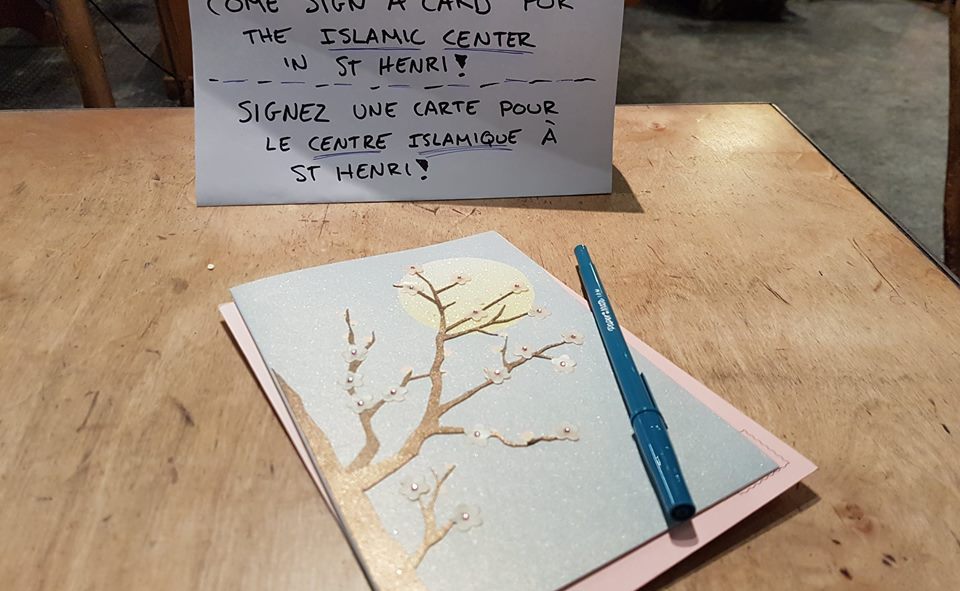 COME SIGN A CARD FOR
THE ISLAMIC CENTER
IN ST HENRI!
SIGNEZ UNE CARTE POUR
LE CENTRE ISLAMIQUE À
ST HENRI!